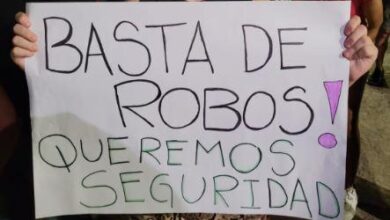 BASTA DE
ROBOS!
QUEREMOS
SEGURIDAD